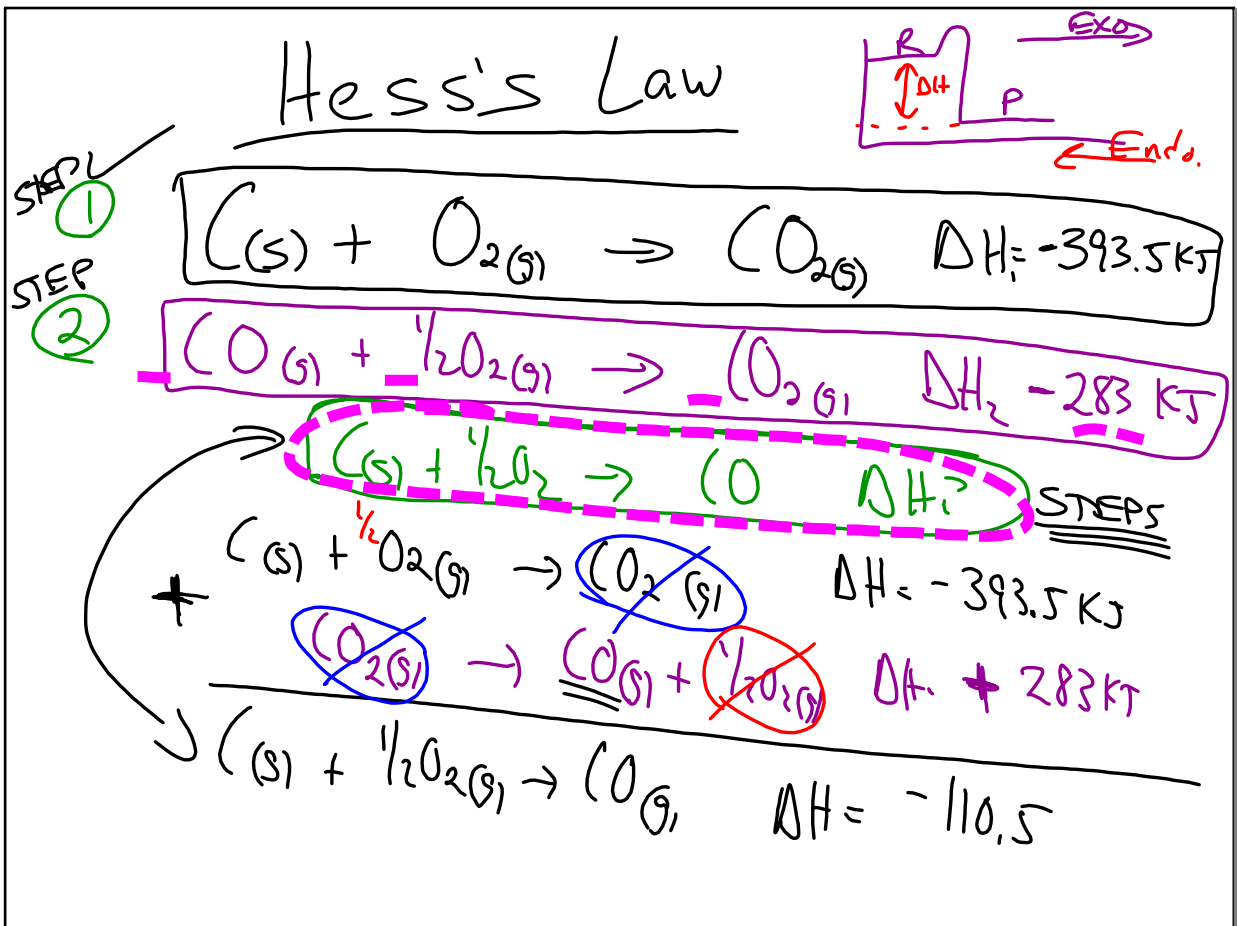 Hess's Law
Exo
R
ΔH
P
Endo.
STEP 1
C(s) + O₂(g) → CO₂(g) ΔH₁ -393.5 KJ
STEP 2
CO(g) + 1/2O₂(g) → CO₂(g) ΔH₂ -283 KJ
C(s) + 1/2O₂ → CO ΔH?
STEPS
C(s) + 1/2 O₂(g) → CO₂(g) ΔH = -393.5 KJ
+
CO₂(g) → CO(g) + 1/2O₂(g) ΔH. + 283 KJ
C(s) + 1/2O₂(g) → CO(g) ΔH = -110.5